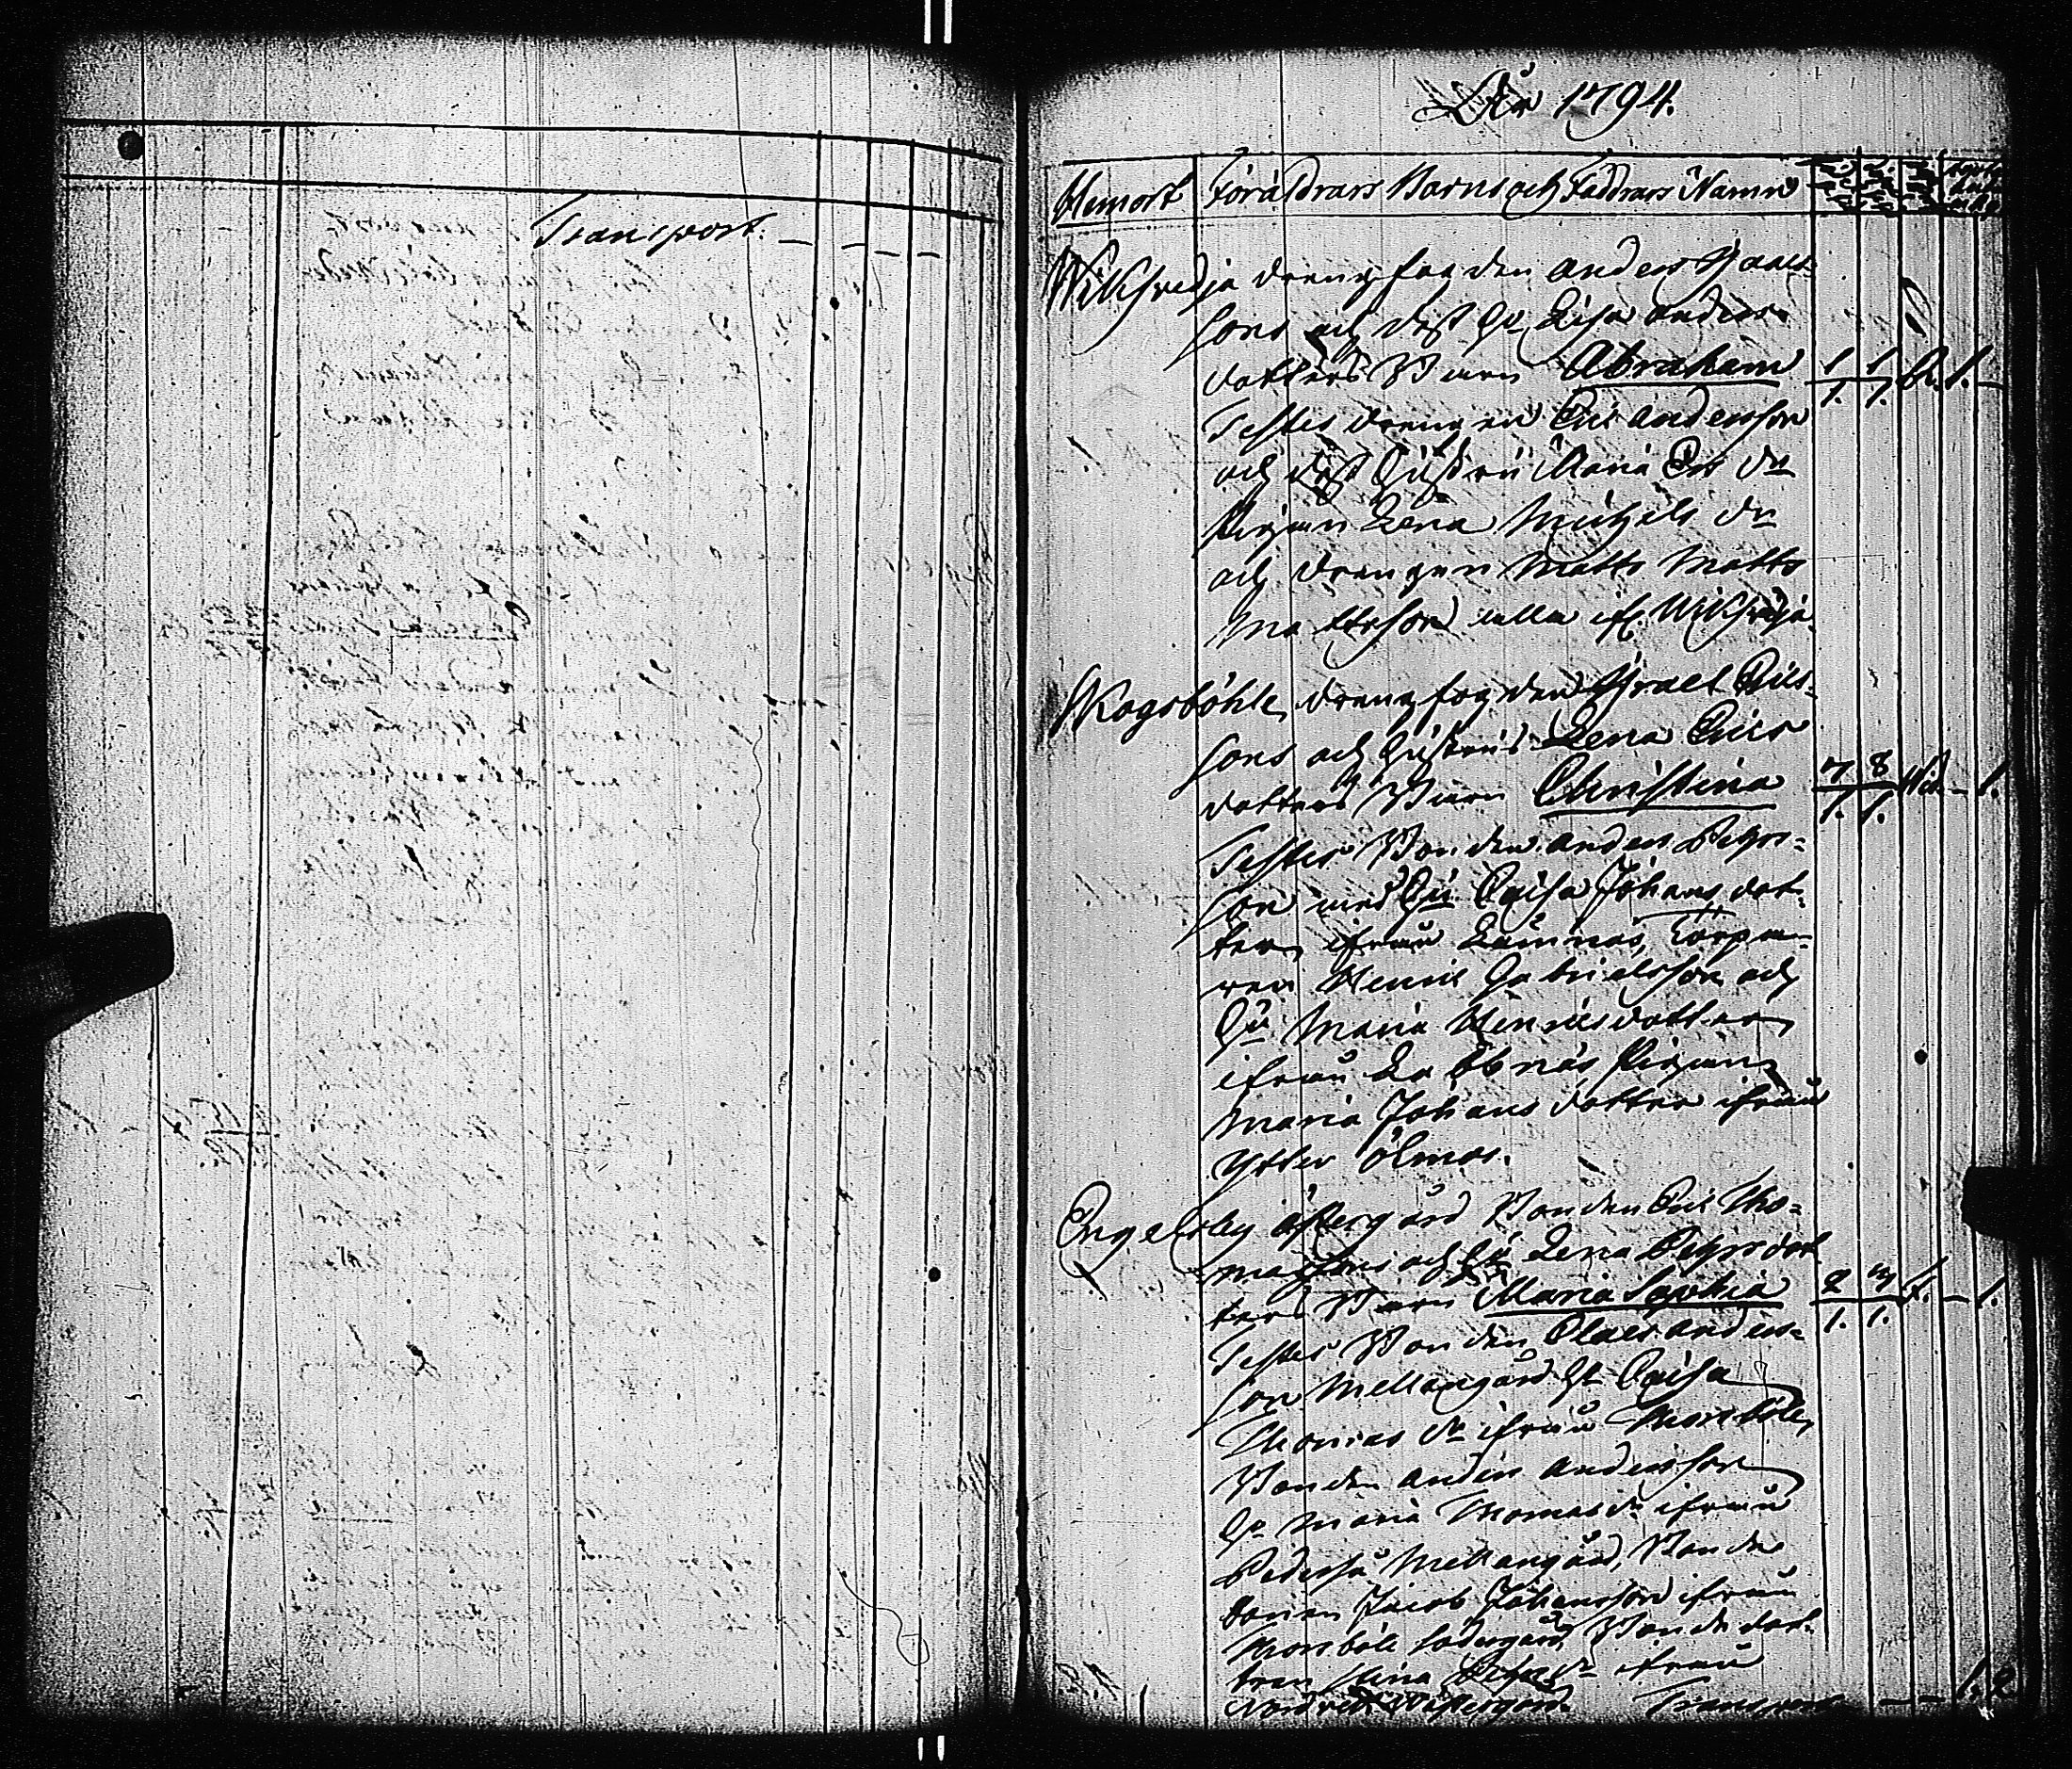 Transport. – – – –
År 1794.
Hemort Föräldrars Barns och Faddrars Namn
Wiksvedja drengfogden Anders Isaacs
sons och dess Hu Lisa Anders
dotters Barn Abraham 1/1. 1/1. 1. –
Testes drengen Eric Andersson
och dess Hustru Maria Ers dr
Pigan Lena Michels dr
och drengen Matts Matts
Mattsson alla if.
Skogsböhle, drengfogden Israel Erics-
sons och Hustrus Lena Erics
dotters Barn Christina 7/1. 8/1. – 1.
Testes Bonden Anders Pehrs=
son med Hu Caisa Johans dot-
ter ifrån Lamnäs, Torpa-
ren Henric Gabrielsson och
Hu Maria Henricsdotter
ifrån Labbnäs Pigan
Maria Johans dotter ifrån
Ytter Ölmos.
Engelsby Östergård Bonden Eric Tho=
massons och Hu Lena Pehrs dot
ters Barn Maria Sophia – 1.
Testes Bonden Claes Anders=
son Mellangård H Caisa
Thomas dr ifrån
Bonden Anders Andersson
H Maria Thomas dr ifrån
Pederså Mellangård, Bonde
sonen Jacob Johansson ifrån
Södergård Bonde dot-
tren Stina dr ifrån
Westergård. Transport – – 1. 2